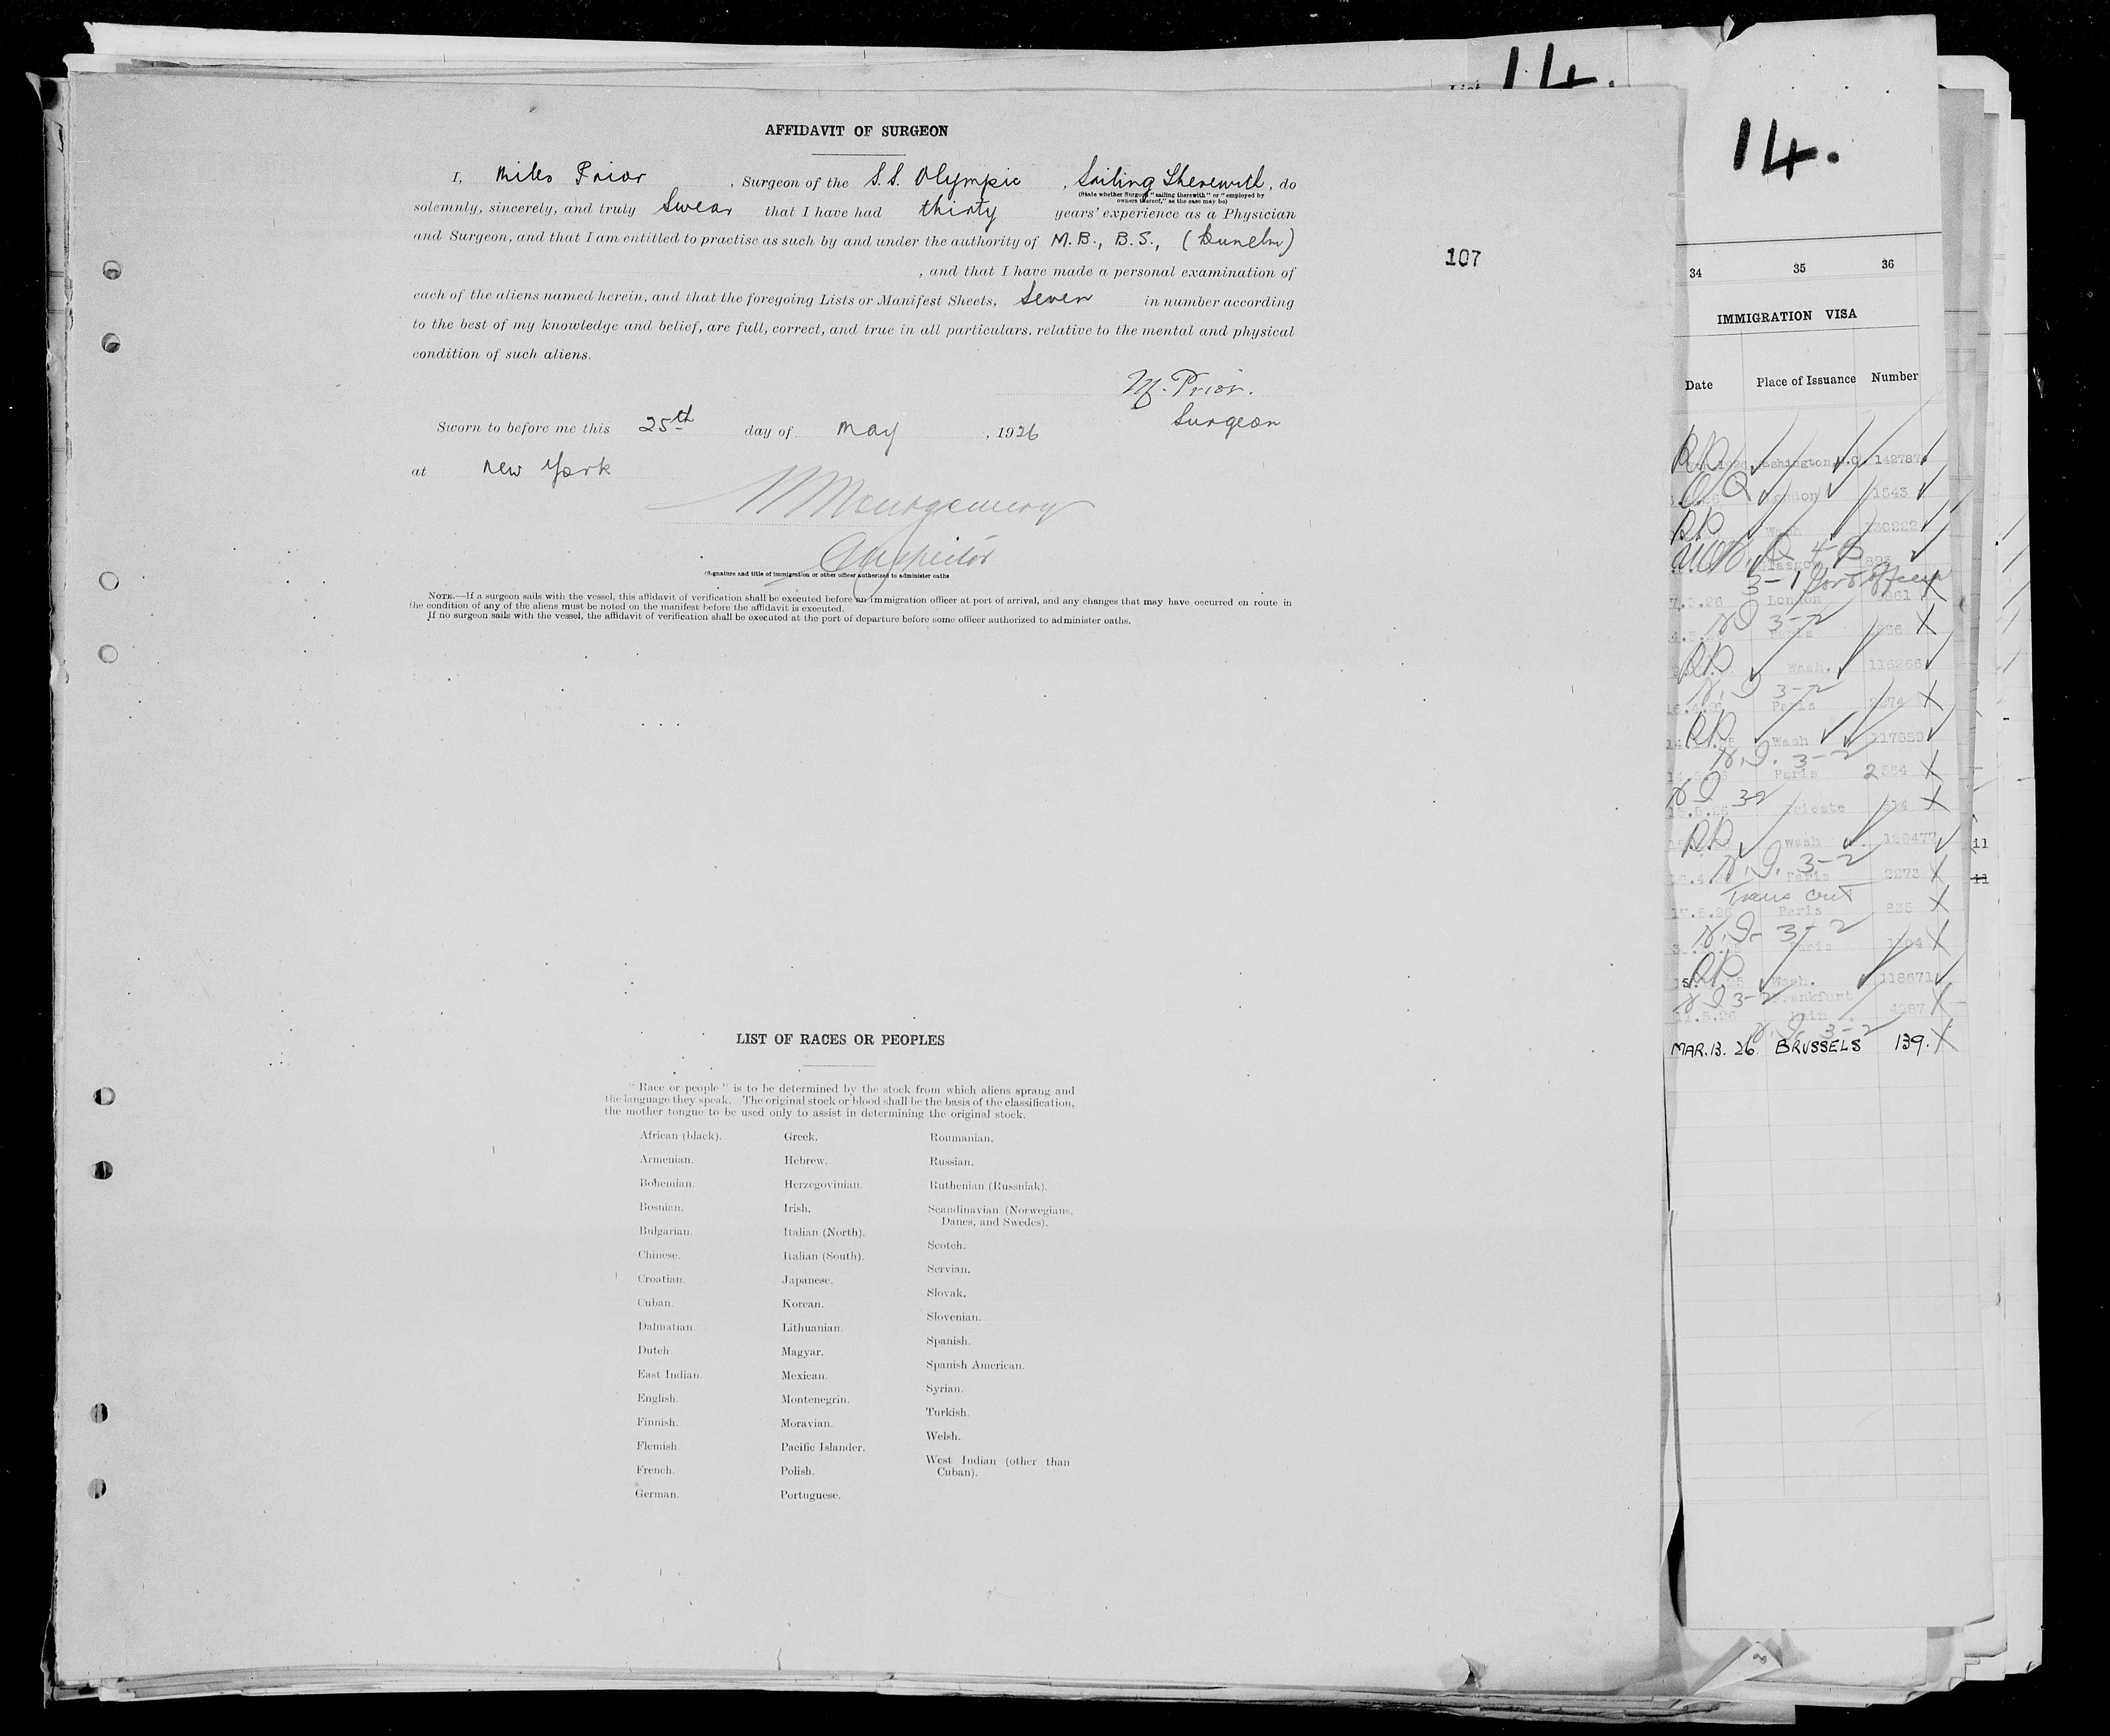 List 14.
14.
AFFIDAVIT OF SURGEON
I, Miles Prior, Surgeon of the S.S. Olympic, Sailing Therewith, do
(State whether Surgeon "sailing therewith" or "employed by
owners thereof," as the case may be)
solemnly, sincerely, and truly Swear that I have had thirty years' experience as a Physician
and Surgeon, and that I am entitled to practise as such by and under the authority of M.B., B.S., (Dunelm)
, and that I have made a personal examination of
each of the aliens named herein, and that the foregoing Lists or Manifest Sheets, Seven in number according
to the best of my knowledge and belief, are full, correct, and true in all particulars, relative to the mental and physical
condition of such aliens.
107
M. Prior.
Surgeon
Sworn to before me this 25th day of May, 1926
at New York
Montgomery
Inspector
(Signature and title of immigration or other officer authorized to administer oaths
NOTE.—If a surgeon sails with the vessel, this affidavit of verification shall be executed before an immigration officer at port of arrival, and any changes that may have occurred en route in
the condition of any of the aliens must be noted on the manifest before the affidavit is executed.
If no surgeon sails with the vessel, the affidavit of verification shall be executed at the port of departure before some officer authorized to administer oaths.
LIST OF RACES OR PEOPLES
"Race or people" is to be determined by the stock from which aliens sprang and
the language they speak. The original stock or blood shall be the basis of the classification,
the mother tongue to be used only to assist in determining the original stock.
African (black).
Armenian.
Bohemian.
Bosnian.
Bulgarian.
Chinese.
Croatian.
Cuban.
Dalmatian.
Dutch.
East Indian.
English.
Finnish.
Flemish.
French.
German.
Greek.
Hebrew.
Herzegovinian.
Irish.
Italian (North).
Italian (South).
Japanese.
Korean.
Lithuanian.
Magyar.
Mexican.
Montenegrin.
Moravian.
Pacific Islander.
Polish.
Portuguese.
Roumanian.
Russian.
Ruthenian (Russniak).
Scandinavian (Norwegians,
Danes, and Swedes).
Scotch.
Servian.
Slovak.
Slovenian.
Spanish.
Spanish American.
Syrian.
Turkish.
Welsh.
West Indian (other than
Cuban).
34 35 36
IMMIGRATION VISA
Date Place of Issuance Number
Washington, D.C. 142787
London 1543
Wash 130222
Glasgow
3-1
7.5.26 London
3-2
Paris
Wash. 116266
3-2
Paris
Wash 117889
N.I. 3-2
Paris 2564
Trieste
Wash 129477
N.I. 3-2
Paris 2273
Trans Cert
17.5.26 Paris 835
N.I. 3-2
Wash. 118671
3-2 Frankfurt
11.5.26 Main
3-2
MAR. 13. 26. BRUSSELS 139.
11
11